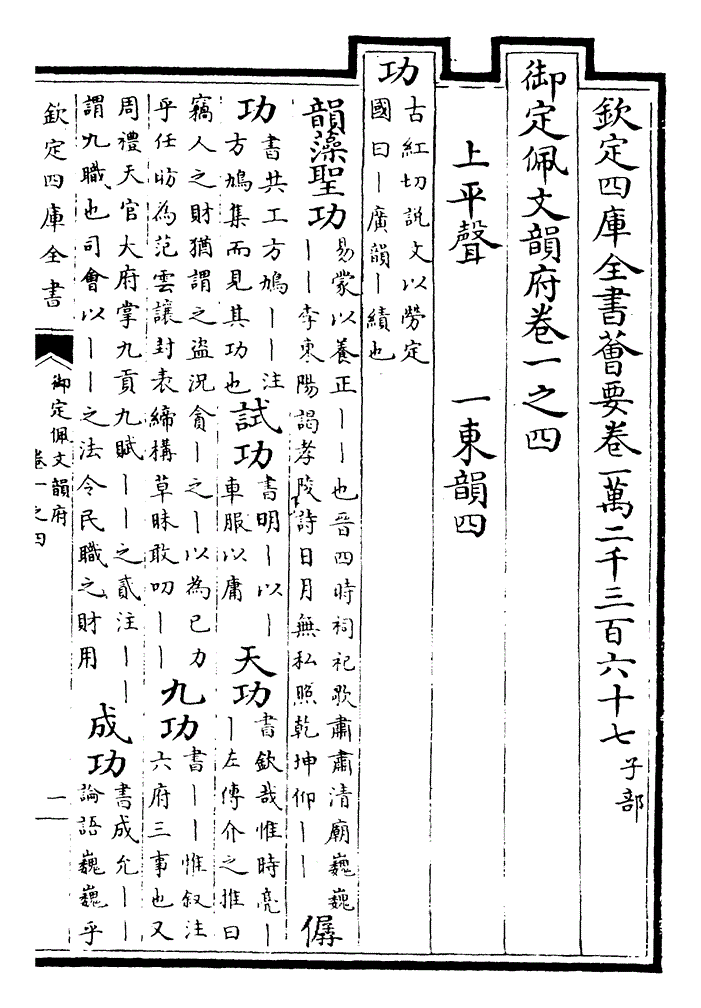 欽定四庫全書薈要卷一萬二千三百六十七 子部
御定佩文韻府卷一之四
上平聲　一東韻四
功
古紅切說文以勞定
國曰丨廣韻丨績也
韻藻聖功
易蒙以養正丨丨也晉四時祠祀歌肅肅清廟巍巍
丨丨李東陽謁孝陵詩日月無私照乾坤仰丨丨
僝
功
書共工方鳩丨丨注
方鳩集而見其功也
試功
書明丨以丨
車服以庸
天功
書欽哉惟時亮丨
丨左傳介之推曰
竊人之財猶謂之盜況貪丨之丨以為己力
乎任昉為范雲讓封表締構草昧敢叨丨丨
九功
書丨丨惟叙注
六府三事也又
周禮天官大府掌九貢九賦丨丨之貳注丨丨
謂九職也司會以丨丨之法令民職之財用
成功
書成允丨丨
論語巍巍乎
欽定四庫全書
御定佩文韻府
卷一之四
一